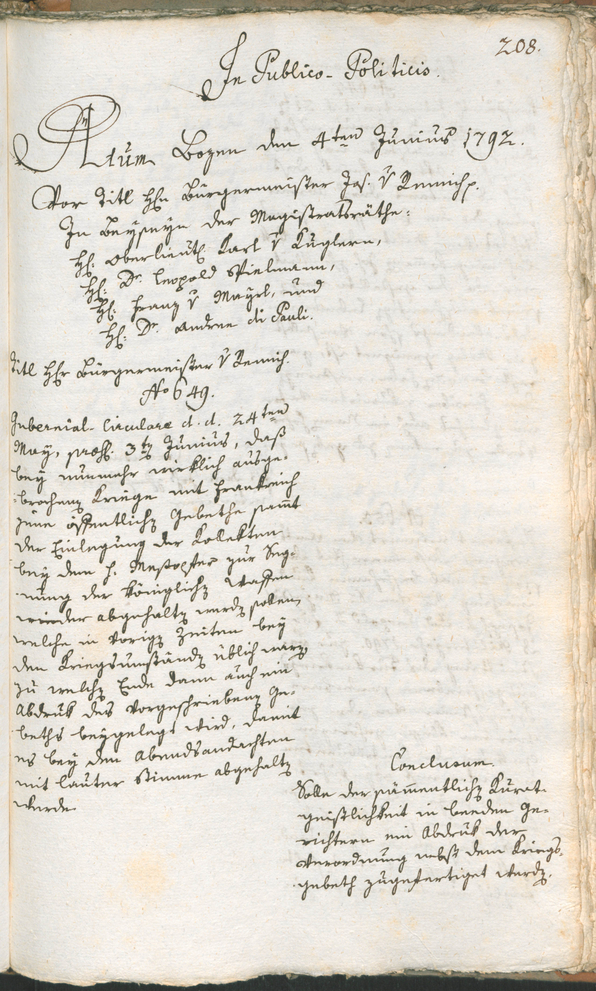 208.
In Publico-Politicis.
Actum Bozen den 4ten Junius 1792.
Vor Titl Hhn Bürgermeister Jos. v Remich p.
In Beyseyn der Magistratsräthe:
Hh: Oberlieut. Karl v Kuglern,
Hh: Dr. Leopold Spielmann,
Hh: Franz v Mayrl, und
Hh: Dr. Andree di Pauli.
Titl Hhr Bürgermeister v Remich.
No 649.
Gubernial-Circulare d. d. 24ten
May, praes. 3ten Junius, daß
bey nunmehr wirklich ausge-
brochenen Kriege mit Frankreich
jene öffentliche Gebethe samt
der Einlegung der Kolekten
bey dem h. Meßopfer zur Seg-
nung der königlichen Waffen
wieder abgehalten werden sollen,
welche in vorigen Zeiten bey
den Kriegsumständen üblich waren
zu welchem Ende dann auch ein
Abdruk des vorgeschriebenen Ge-
beths beygelegt wird, damit
es bey den Abendsandachten
mit lauter Stimme abgehalten
werde.
Conclusum.
Solle der sämmentlichen Kurat-
geistlichkeit in beeden Ge-
richtern ein Abdruk der
Verordnung nebst dem Kriegs-
gebeth zugefertiget werden.